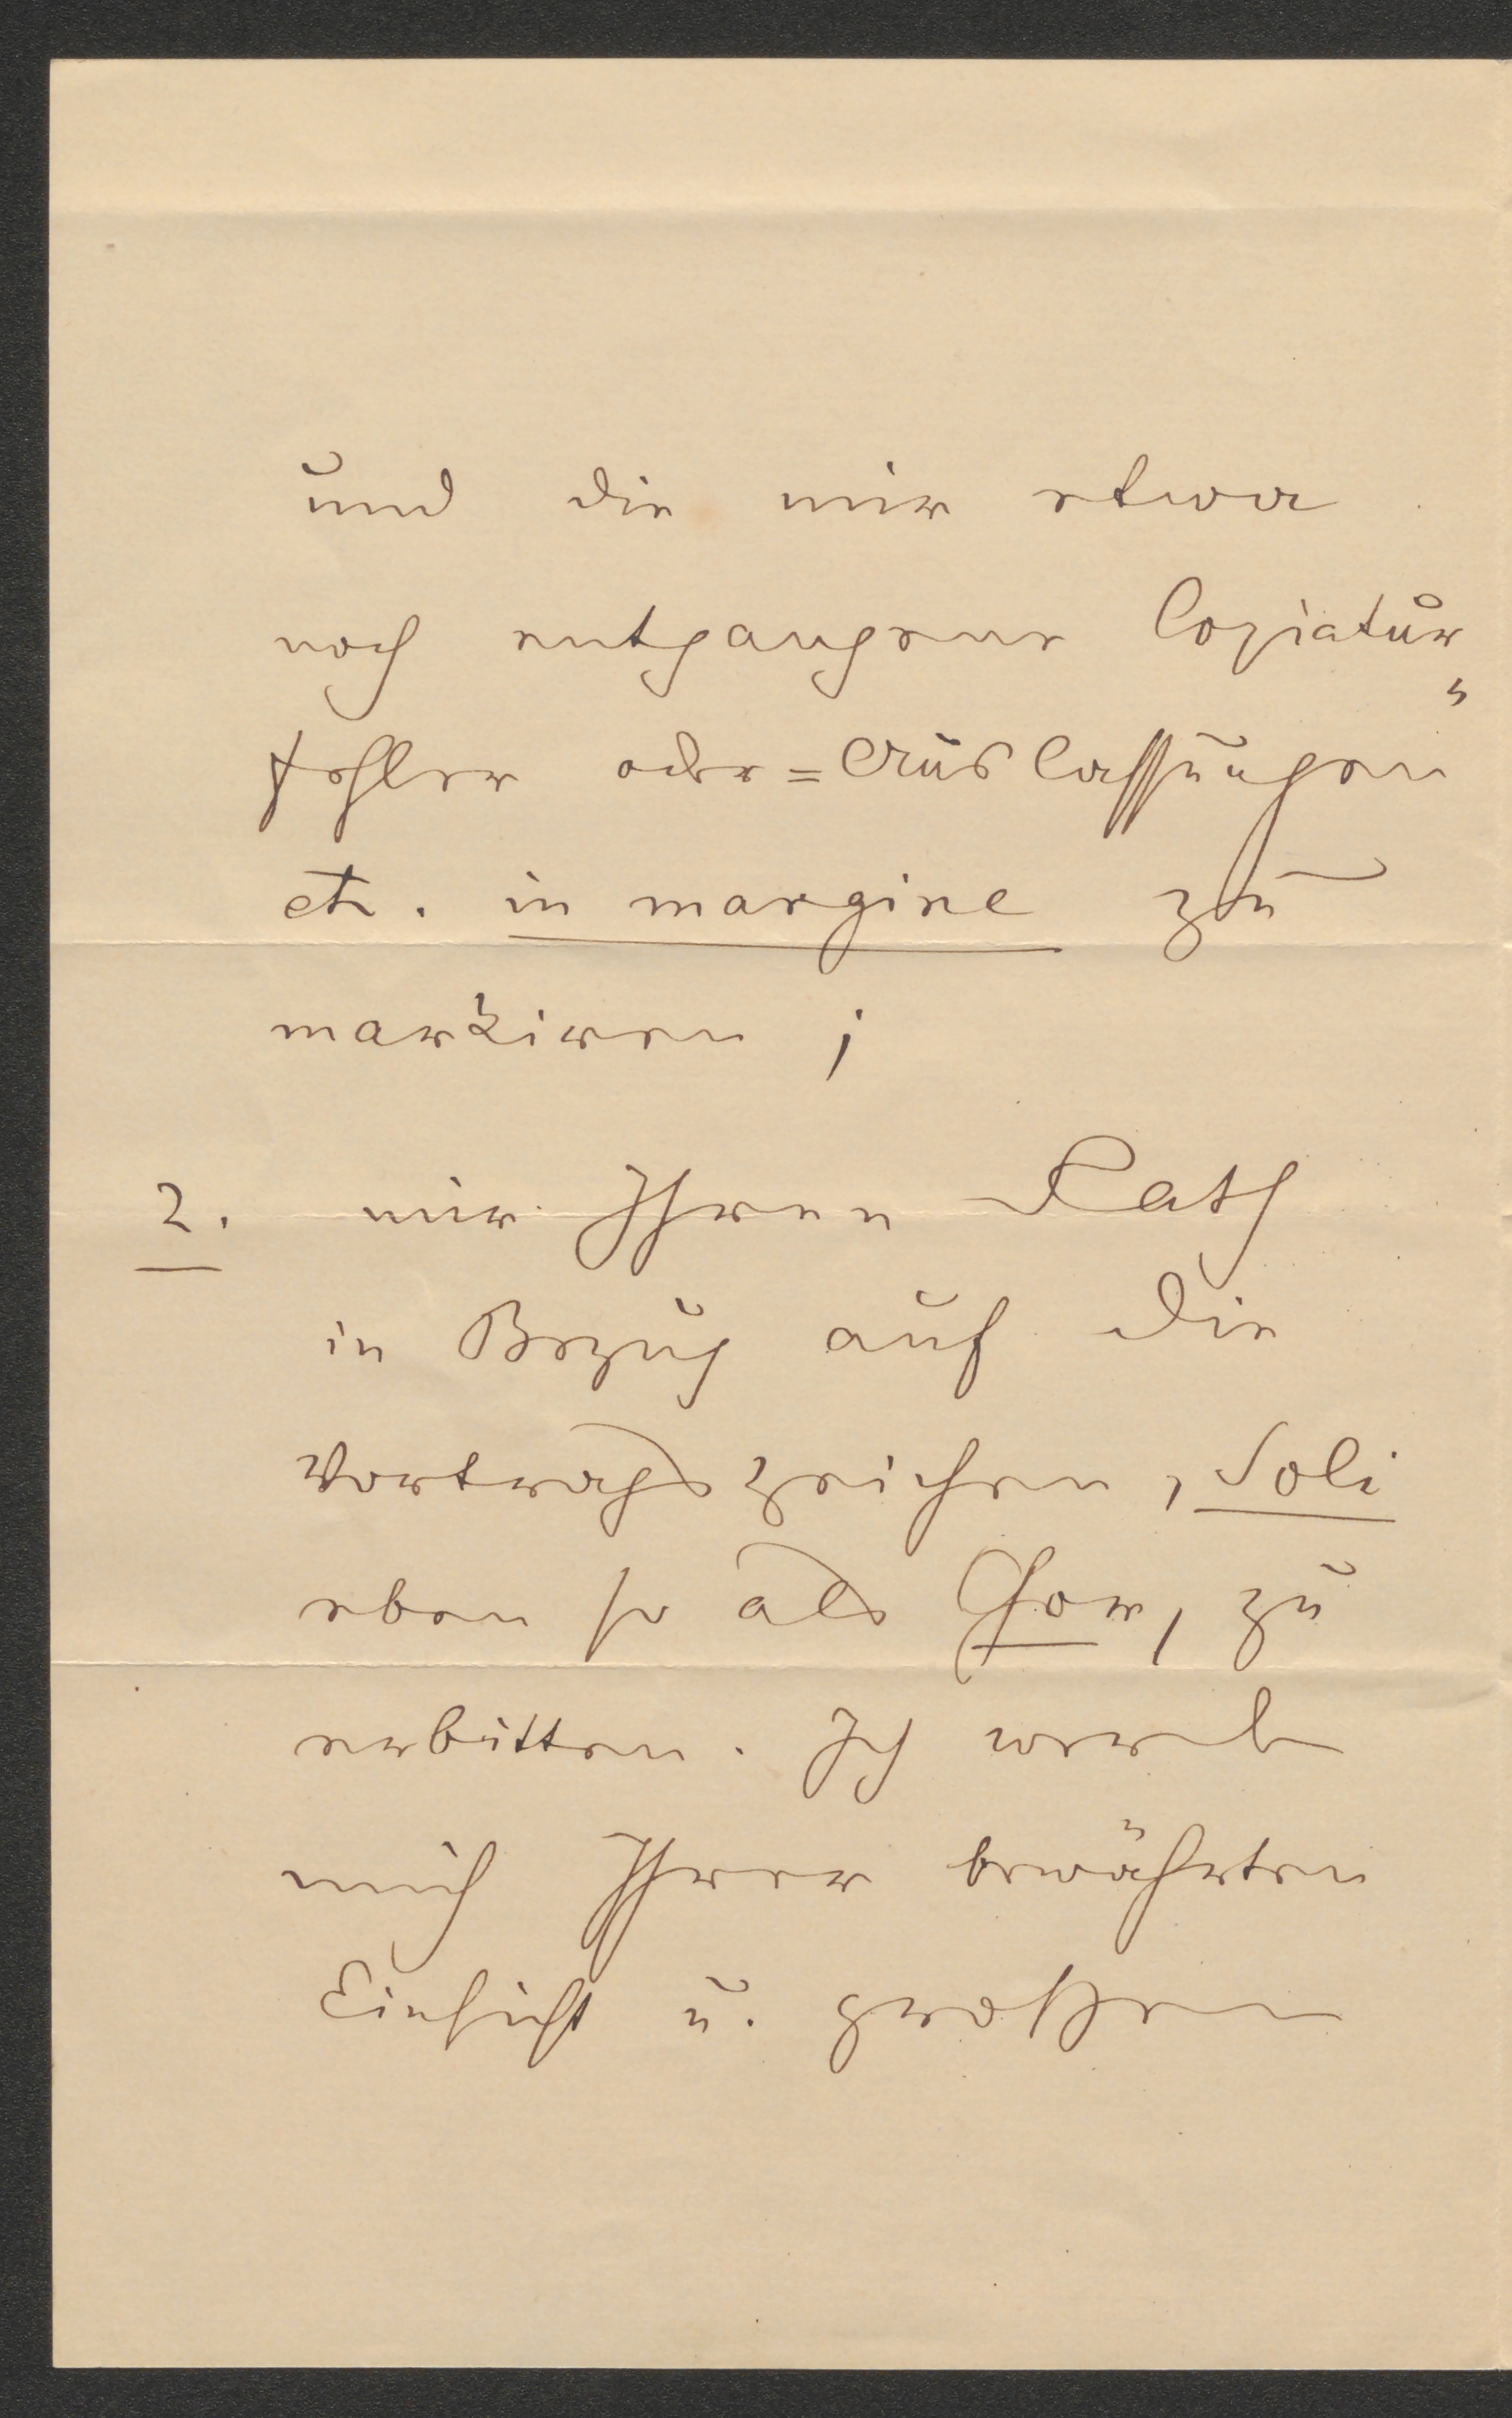 und die mir etwa
noch entgangene Copiatur„
fehler oder=Auslassungen
etc. in margine zu
markiren;
2. mir Ihren Rath
in Bezug auf die
Vortragszeichen, Soli
eben so als Chor, zu
erbitten. Ich werde
mich Ihrer bewährten
Einsicht u. großen